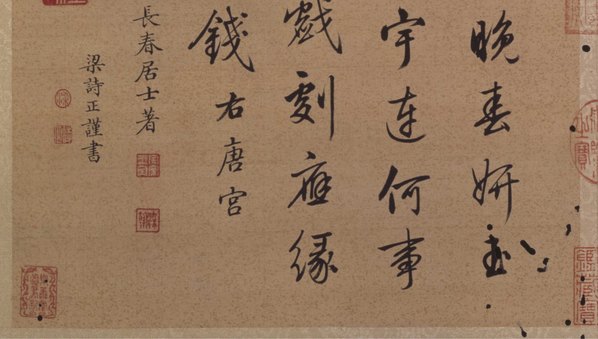 晚春妍
宇連何事
戲劇應緣
錢右唐宮
長春居士著
梁詩正謹書